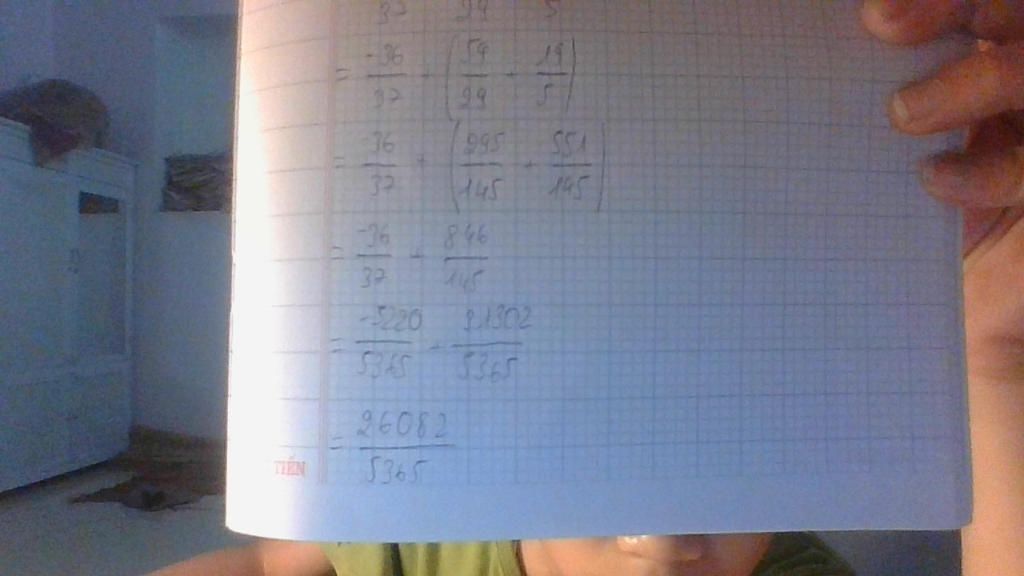 37 29 5
= -36/37 + (59/29 + 19/5)
= -36/37 + (295/145 + 551/145)
= -36/37 + 846/145
= -5220/5365 + 31302/5365
= 26082/5365
TIẾN